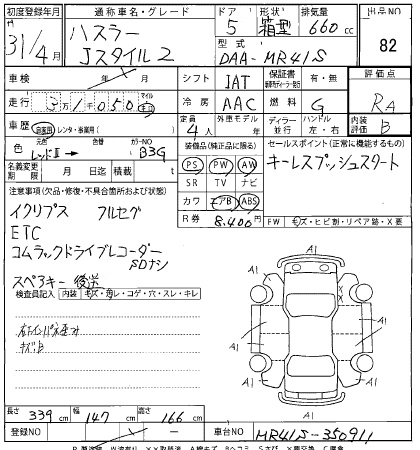 初度登録年月 通称車名・グレード ドア 形状 排気量 出品NO
31年/4月 ハスラー Jスタイル2 5 箱型 660cc 82
型式 DAA-MR41S
車検 年 月 シフト IAT 保証書 有・無 評価点 RA
走行 31,050 マイル 冷房 AAC 燃料 G 内装評価 B
定員 4人 外車モデル 年 ディーラー 並行 ハンドル 左・右
車歴 自家用・レンタ・事業用( )
色 レッドⅡ→ 元色 色替 カラーNO B3G
装備品(純正品に限る) セールスポイント(正常に機能するもの)
名義変更期限 月 日迄・積載 t
PS PW AW キーレスプッシュスタート
SR TV ナビ
カワ エアB ABS
R券 8,400円 FW キズ・ヒビ割・リペア跡・X要
注意事項(欠品・修復・不具合箇所および状態)
イクリプス フルセグ
ETC
コムテックドライブレコーダー
SDナシ
スペアキー 後送
検査員記入 内装 キズ・汚レ・コゲ・穴・スレ・キレ
キズB
A1 A1 A1 A1 A1 A1 A1
長さ 339cm 幅 147cm 高さ 166cm
登録NO 車台NO MR41S-350911